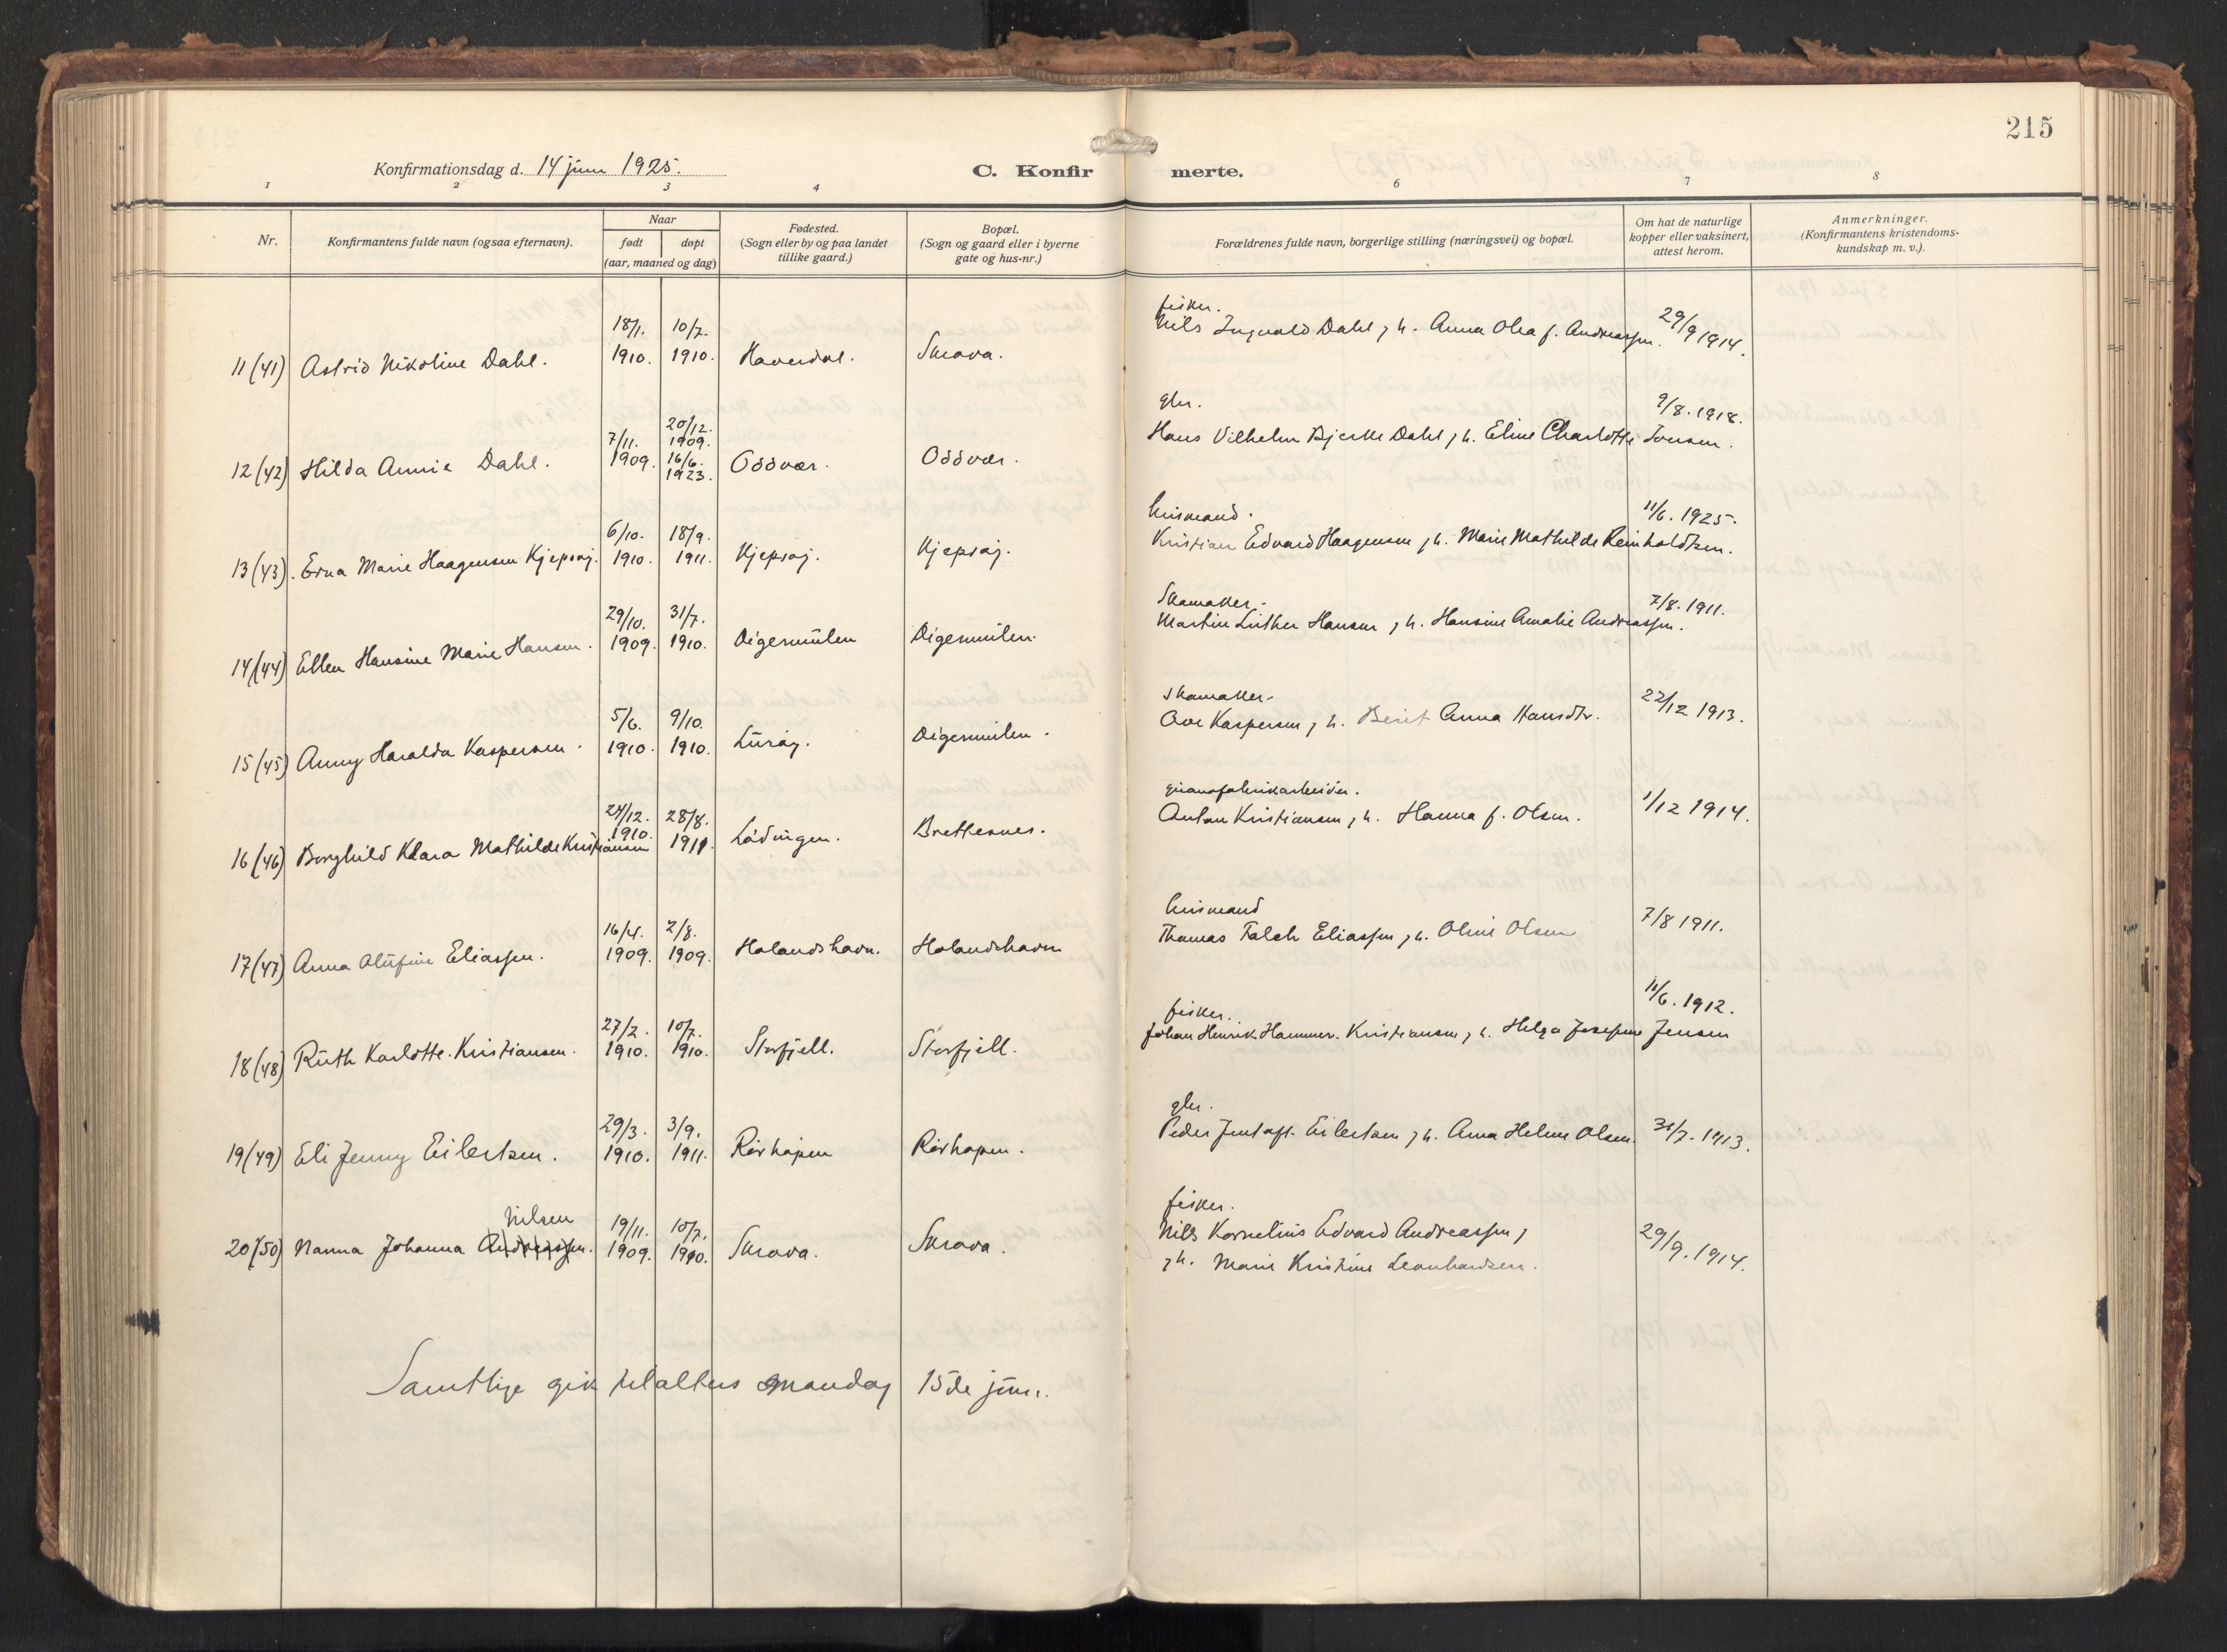 215
Konfirmationsdag d. 14 juni 1925.
C. Konfirmerte.
1 2 3 4 6 7 8
Nr.
Konfirmantens fulde navn (ogsaa efternavn).
Naar
født
døpt
(aar, maaned og dag)
Fødested.
(Sogn eller by og paa landet
tillike gaard.)
Bopæl.
(Sogn og gaard eller i byerne
gate og hus-nr.)
Forældrenes fulde navn, borgerlige stilling (næringsvei) og bopæl.
Om hat de naturlige
kopper eller vaksinert,
attest herom.
Anmerkninger.
(Konfirmantens kristendoms-
kundskap m. v.).
18/1. 10/7. fisker.
11(41) Astrid Nikoline Dahl. 1910. 1910. Haverdal. Skrova. Nils Ingvald Dahl, h. Anna Olea f. Andreassen. 29/9 1914.
7/11. 20/12. 1909. gbr. 9/8. 1918.
12(42) Hilda Annie Dahl. 1909. 16/6. 1923. Oddvær. Oddvær. Hans Vilhelm Bjerke Dahl, h. Eline Charlotte Iversen.
6/10. 18/9. husmand. 11/6. 1925.
13(43). Erna Marie Haagensen Kjepsøj. 1910. 1911. Kjepsøj. Kjepsøj. Kristian Edvard Haagensen, h. Marie Mathilde Reinholdtsen.
29/10. 31/7. Skomaker. 7/8. 1911.
14(44) Ellen Hansine Marie Hansen. 1909. 1910. Digermulen Digermulen. Martin Luther Hansen, h. Hansine Amalie Andreassen.
5/6. 9/10. skomaker. 22/12 1913.
15(45) Anny Haralda Kaspersen. 1910. 1910. Lurøy. Digermulen. Ove Kaspersen, h. Berit Anna Hansdtr.
24/12. 28/8. guanofabrikarbeider. 1/12 1914.
16(46) Borghild Klara Mathilde Kristiansen 1910. 1911. Lødingen. Brettesnes. Anton Kristiansen, h. Hanna f. Olsen.
16/4. 2/8. husmand 7/8 1911.
17(47) Anna Olufine Eliassen. 1909. 1909. Holandshavn. Holandshavn Thomas Falch Eliassen, h. Oline Olsen
27/2. 10/7. fisker. 11/6. 1912.
18(48) Ruth Karlotte Kristiansen. 1910. 1910. Storfjell. Storfjell. Johan Henrik Hammer. Kristiansen, h. Helga Josefine Jensen
29/3. 3/9. gbr.
19(49) Eli Jenny Eilertsen. 1910. 1911. Rørhopen Rørhopen. Peder Gustaf. Eilertsen, h. Anna Helene Olsen. 31/7. 1913.
Nilsen 19/11. 10/7. fisker.
20(50) Nanna Johanna Andreassen. 1909. 1910. Skrova. Skrova. Nils Kornelius Edvard Andreassen, 29/9. 1914.
h. Marie Kristine Leonhardsen.
Samtlige gik til alters mandag 15de juni.